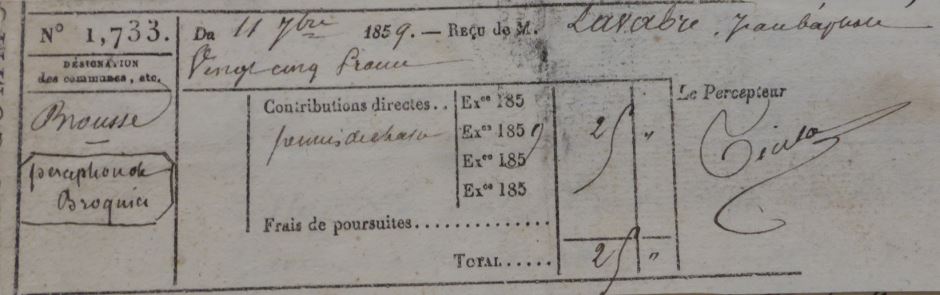 N° 1,733. Du 11 7bre 1859. — Reçu de M. Lavabre, Jean baptiste
Vingt cinq francs
DÉSIGNATION
des communes, etc.
Brousse
perception de
Broquiès
Contributions directes.. Exce 185
permis de chasse Exce 1859 25 "
Exce 185
Exce 185
Frais de poursuites..............
TOTAL...... 25 "
Le Percepteur